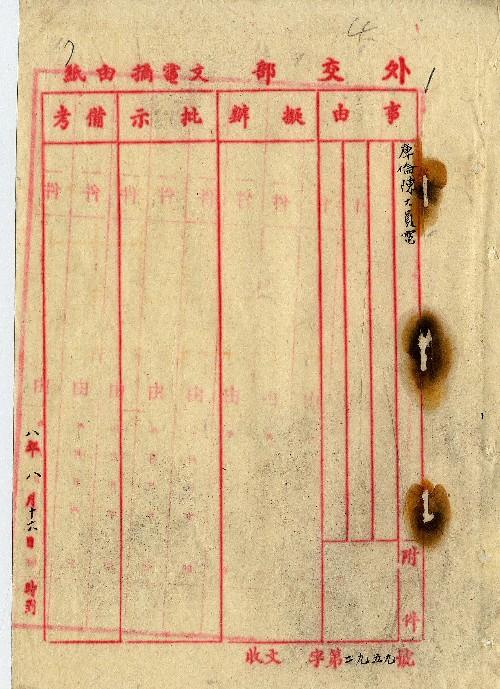 外交部 文電摘由紙
事由
擬辦
批示
備考
庫倫陳大員電
附件
八年八月十六日 時到
收文 字第二九五九號
4